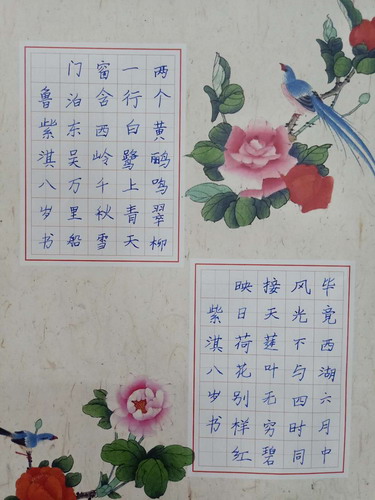 两个黄鹂鸣翠柳
一行白鹭上青天
窗含西岭千秋雪
门泊东吴万里船
鲁紫淇八岁书
毕竟西湖六月中
风光不与四时同
接天莲叶无穷碧
映日荷花别样红
紫淇八岁书